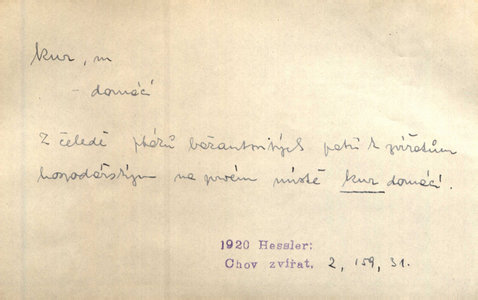 kur, m
- domácí
Z čeledě ptáků bažantovitých patří k zvířatům
hospodářským na prvém místě kur domácí.
1920 Hessler:
Chov zvířat. 2, 159, 31.